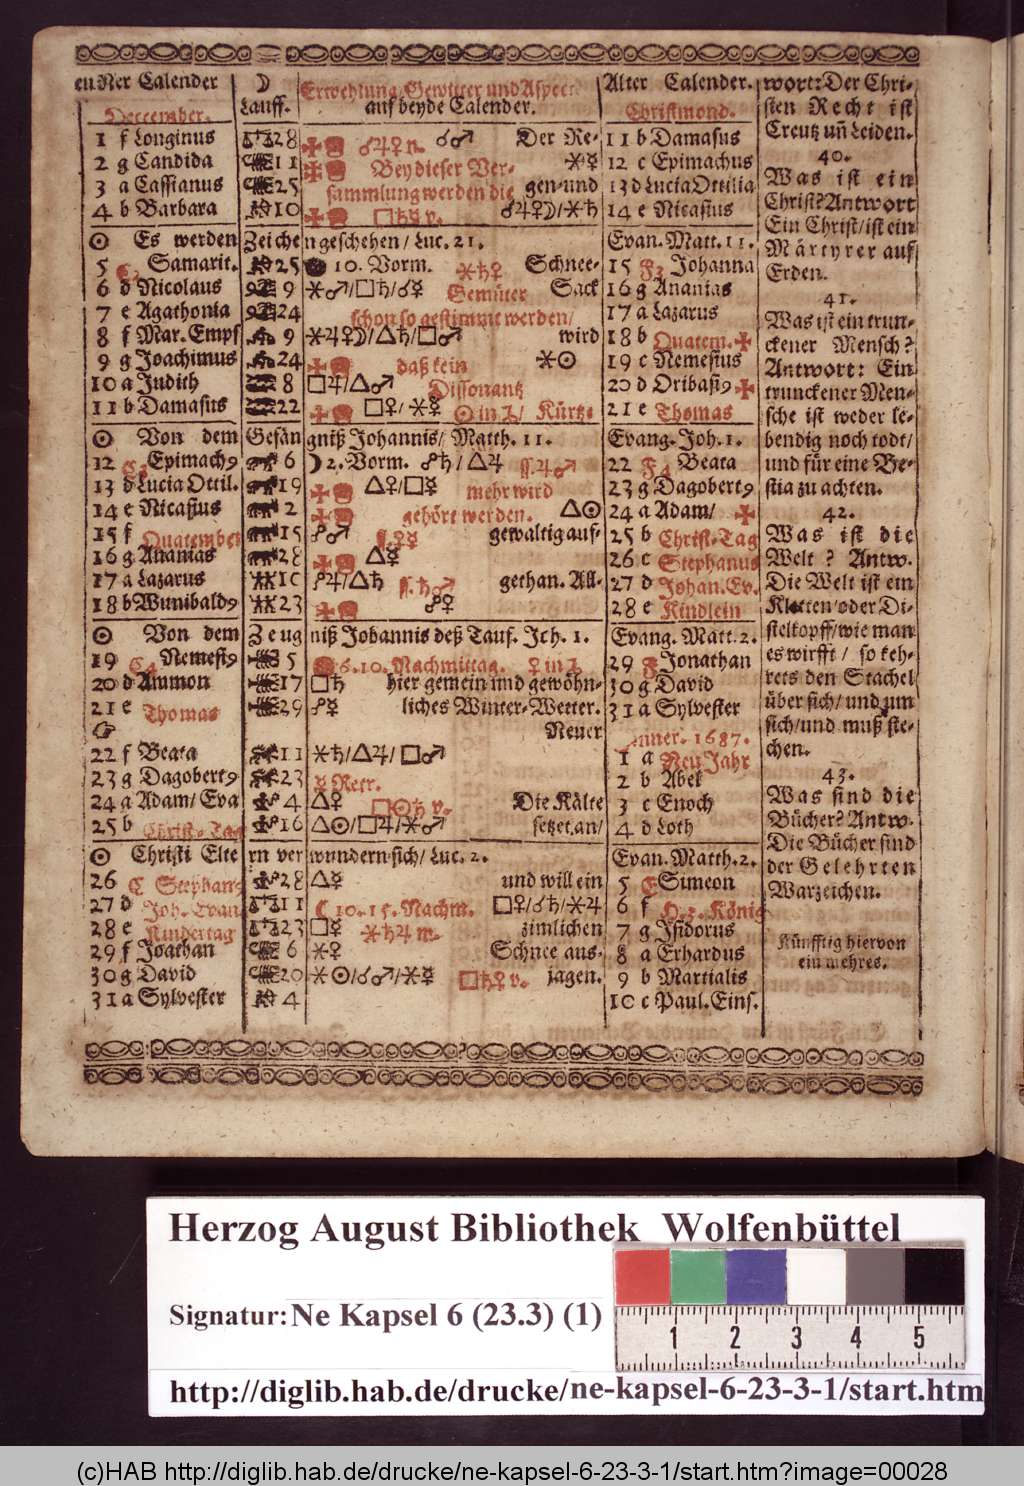 Neuer Calender
December.
1 f Longinus
2 g Candida
3 a Cassianus
4 b Barbara
☉ Es werden Zeichen geschehen / Luc. 21.
5 Samarit.
6 d Nicolaus
7 e Agathonia
8 f Mar. Empf
9 g Joachimus
10 a Judith
11 b Damasus
☉ Von dem Gefängniß Johannis / Matth. 11.
12 Epimach9
13 d Lucia Ottil.
14 e Nicasius
15 f Quatember
16 g Ananias
17 a Lazarus
18 b Wunibald9
☉ Von dem Zeugniß Johannis deß Tauf. Joh. 1.
19 Nemesi9
20 d Ammon
21 e Thomas
22 f Beata
23 g Dagobert9
24 a Adam / Eva
25 b Christ-Tag
☉ Christi Eltern verwundern sich / Luc. 2.
26 C Stephan9
27 d Joh. Evan
28 e Kindertag
29 f Joathan
30 g David
31 a Sylvester
☽
Lauff.
28
11
25
10
25
9
24
9
24
8
22
6
19
2
15
28
10
23
5
17
29
11
23
4
16
28
11
23
6
20
4
Erwehlung, Gewitter und Aspect
auf beyde Calender.
☌♃♀ n. ☌♂ Der Re-
Bey dieser Ver- ⚹☿
sammlung werden die gen-und
□♄☿ v. ☌♃♀☽/⚹♄
10. Vorm. ⚹♄♀ Schnee-
⚹♂/□♄/☌☿ Gemüter Sack
schon so gestimmt werden /
⚹♃♀☽/△♄/□♂ wird
daß kein ⚹☉
□♃/△♂ Dissonantz
□♀/⚹☿ Kürtz.
☽ 2. Vorm. ☍♄/△♃
△♀/□☿ mehr wird
gehört werden. △☉
☍♂ gewaltig auf-
△☿
☍♃/△♄ gethan. All-
☍♀
6.10. Nachmittag.
□♄ hier gemein und gewöhn-
☍☿ liches Winter-Wetter.
Neuer
⚹♄/△♃/□♂
☿ Retr.
△♀ □☉♄ v. Die Kälte
△☉/□♃/⚹♂ setzet an /
△☿ und will ein
☾ 10.15. Nachm. □♀/☌♄/⚹♃
□☿ ⚹♄♃ n. zimlichen
⚹♀ Schnee aus-
⚹☉/☌♂/⚹☿ □♄♀ v. jagen.
Alter Calender.
Christmond.
11 b Damasus
12 c Epimachus
13 d Lucia Ottilia
14 e Nicasius
Evan. Matt. 11.
15 Johanna
16 g Ananias
17 a Lazarus
18 b Quatem.
19 c Nemesius
20 d Oribasi9
21 e Thomas
Evang. Joh. 1.
22 Beata
23 g Dagobert9
24 a Adam /
25 b Christ-Tag
26 c Stephanus
27 d Johan. Ev.
28 e Kindlein
Evang. Matt. 2.
29 Jonathan
30 g David
31 a Sylvester
Jenner. 1687.
1 a Neu Jahr
2 b Abel
3 c Enoch
4 d Loth
Evan. Matth. 2.
5 E Simeon
6 f H. 3. König
7 g Isidorus
8 a Erhardus
9 b Martialis
10 c Paul. Eins.
wort: Der Chri-
sten Recht ist
Creutz uñ Leiden.
40.
Was ist ein
Christ? Antwort
Ein Christ / ist ein
Märtyrer auf
Erden.
41.
Was ist ein trun-
ckener Mensch?
Antwort: Ein
trunckener Men-
sche ist weder le-
bendig noch todt /
und für eine Be-
stia zu achten.
42.
Was ist die
Welt? Antw.
Die Welt ist ein
Kletten / oder Di-
stelkopff / wie man
es wirfft / so keh-
rets den Stachel
über sich / und un
sich / und muß ste-
chen.
43.
Was sind die
Bücher? Antw.
Die Bücher sind
der Gelehrten
Warzeichen.
Künfftig hiervon
ein mehres.
Herzog August Bibliothek Wolfenbüttel
Signatur: Ne Kapsel 6 (23.3) (1)
1 2 3 4 5
http://diglib.hab.de/drucke/ne-kapsel-6-23-3-1/start.htm
(c)HAB http://diglib.hab.de/drucke/ne-kapsel-6-23-3-1/start.htm?image=00028